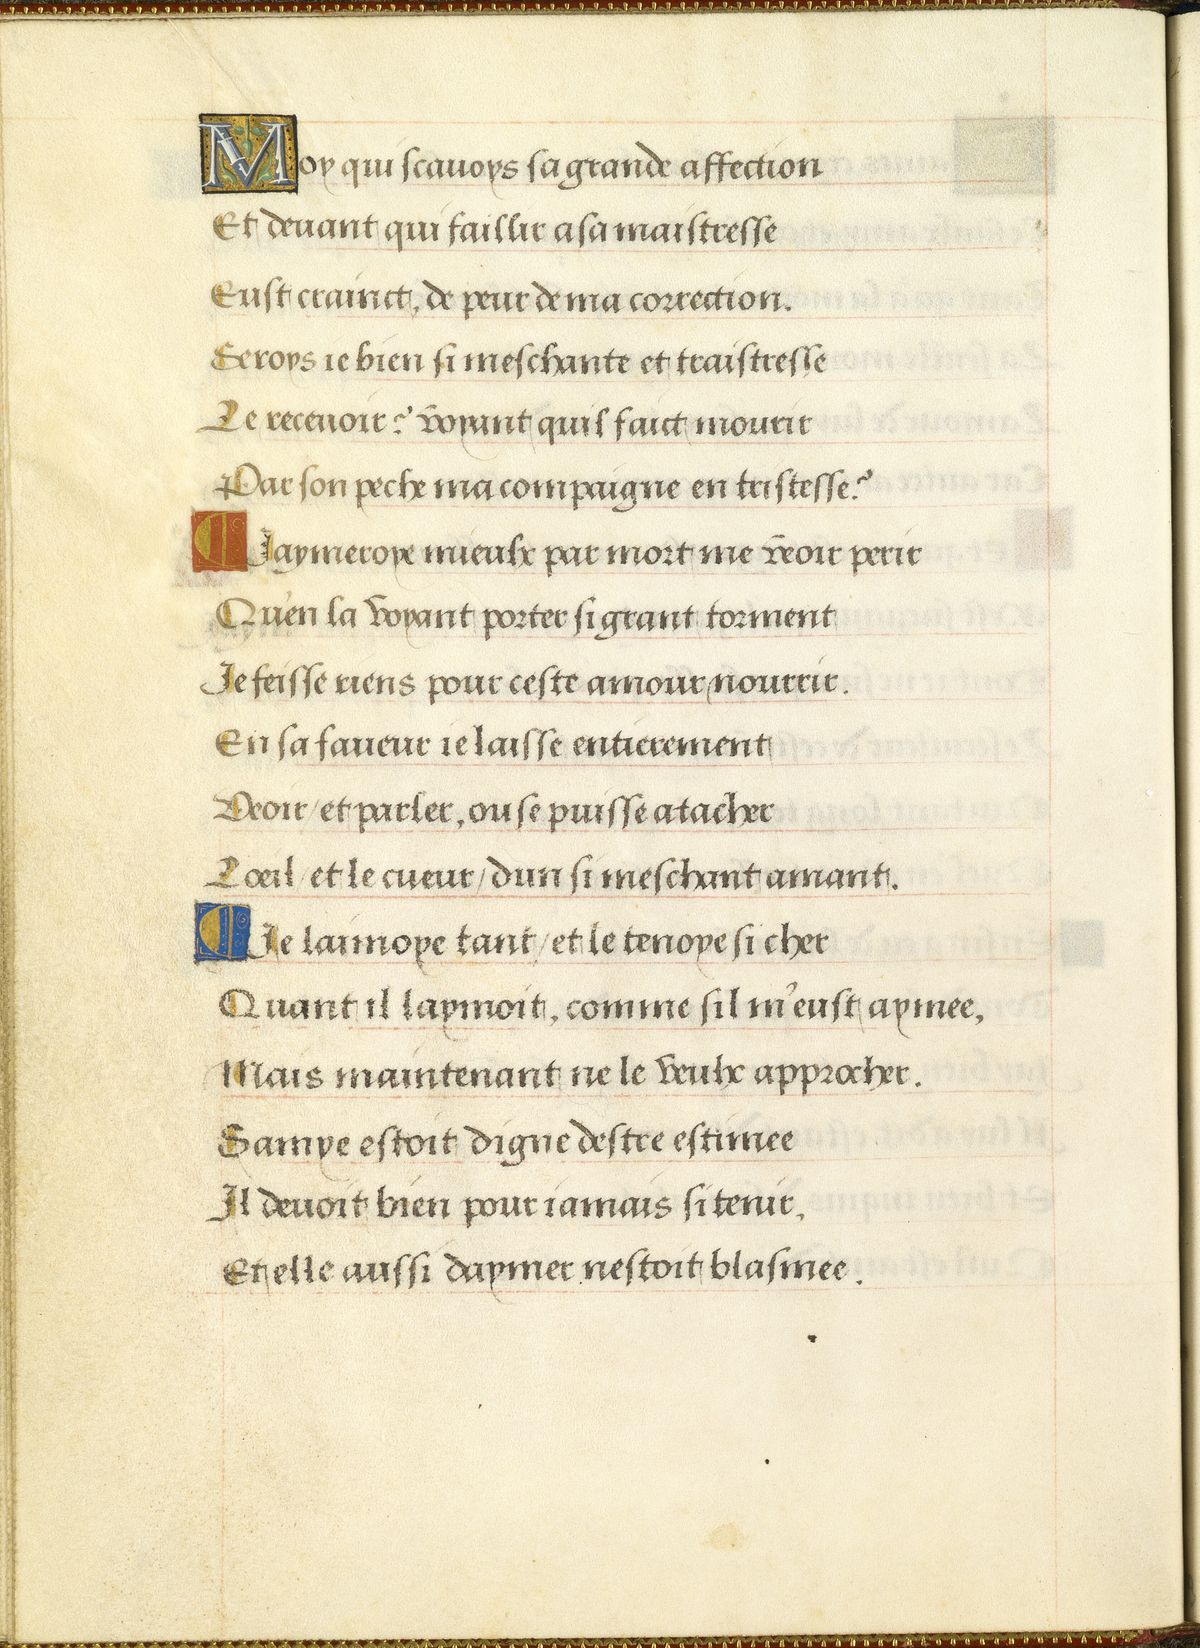 Moy qui scauoys sa grande affection
Et deuant qui faillir a sa maistresse
Eust crainct, de peur de ma correction.
Seroys ie bien si meschante et traistresse
Le receuoir? voyant quil faict mourir
Par son peche ma compaigne en tristesse?
Jaymeroye mieulx par mort me veoir perir
Qu'en la voyant porter si grant torment
Je feisse riens pour ceste amour nourrir.
En sa faueur ie laisse entierement
Veoir/et parler, ou se puisse atacher
Loeil/et le cueur/dun si meschant amant.
Je laimoye tant/et le tenoye si cher
Quant il laymoit, comme sil m'eust aymee,
Mais maintenant ne le veulx approcher.
Samye estoit digne destre estimee
Il deuoit bien pour iamais si tenir,
Et elle aussi daymer nestoit blasmee.